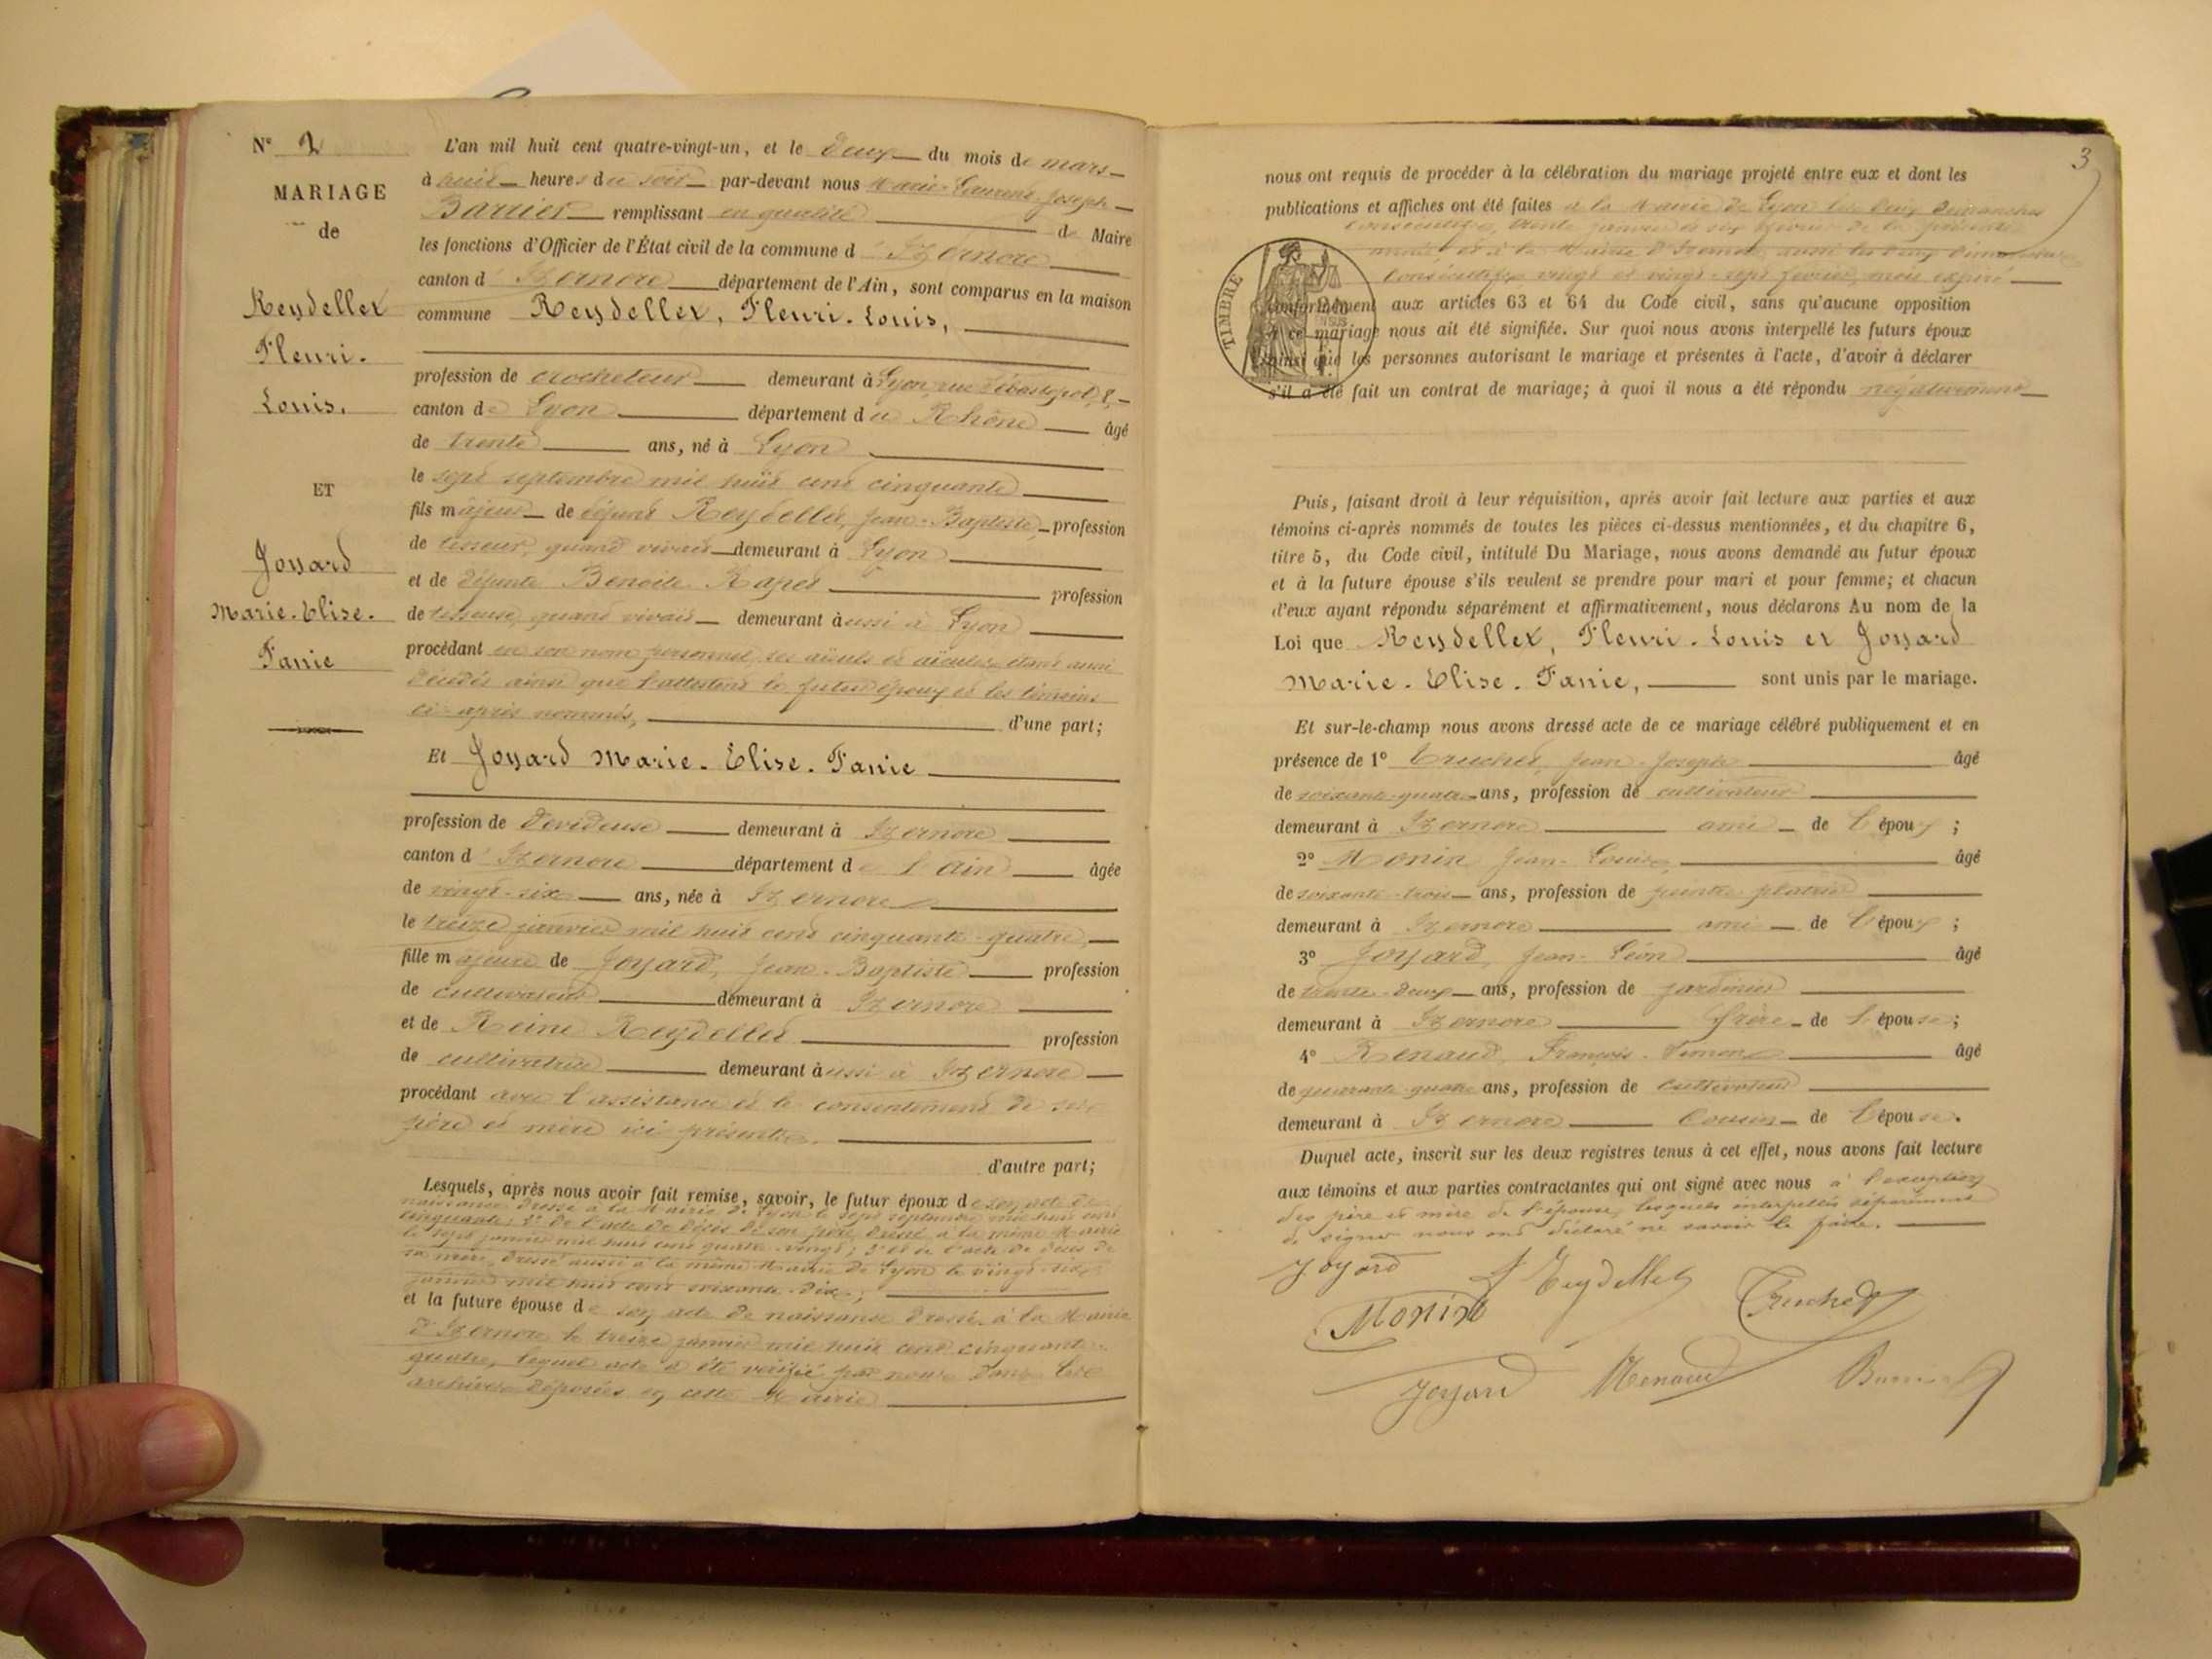 N° 2
MARIAGE
de
Reydellet
Fleuri.
Louis.
ET
Joyard
Marie. Elise.
Fanie
L'an mil huit cent quatre-vingt-un, et le deux du mois de mars
à huit heures du soir par-devant nous Marie Laurent Joseph
Barrier remplissant en qualité de Maire
les fonctions d'Officier de l'État civil de la commune d'Izernore
canton d'Izernore département de l'Ain, sont comparus en la maison
commune Reydellet, Fleuri. Louis,
profession de crocheteur demeurant à Lyon, rue Sébastopol, 8
canton de Lyon département du Rhône âgé
de trente ans, né à Lyon
le sept septembre mil huit cent cinquante
fils majeur de défunt Reydellet, Jean-Baptiste, profession
de tisseur, quand vivait demeurant à Lyon
et de défunte Benoite Rapet profession
de tisseuse, quand vivait demeurant aussi à Lyon
procédant en son nom personnel, ses aïeuls et aïeules étant aussi
décédés ainsi que l'attestent le futur époux et les témoins
ci-après nommés, d'une part;
Et Joyard Marie. Elise. Fanie
profession de dévideuse demeurant à Izernore
canton d'Izernore département de l'Ain âgée
de vingt-six ans, née à Izernore
le treize janvier mil huit cent cinquante-quatre,
fille majeure de Joyard, Jean-Baptiste profession
de cultivateur demeurant à Izernore
et de Reine Reydellet profession
de cultivatrice demeurant aussi à Izernore
procédant avec l'assistance et le consentement de ses
père et mère ici présents.
d'autre part;
Lesquels, après nous avoir fait remise, savoir, le futur époux de son acte de
naissance dressé à la Mairie de Lyon le sept septembre mil huit cent
cinquante; 2° de l'acte de décès de son père, dressé à la même Mairie
le sept janvier mil huit cent quatre-vingt; 3° et de l'acte de décès de
sa mère, dressé aussi à la même Mairie de Lyon le vingt-six
janvier mil huit cent soixante-dix;
et la future épouse de son acte de naissance dressé à la Mairie
d'Izernore le treize janvier mil huit cent cinquante-
quatre, lequel acte a été vérifié par nous dans les
archives déposées en cette Mairie
3
nous ont requis de procéder à la célébration du mariage projeté entre eux et dont les
publications et affiches ont été faites à la Mairie de Lyon les deux dimanches
consécutifs, trente janvier et six février de la présente
année et à la Mairie d'Izernore aussi les deux dimanches
consécutifs, vingt et vingt-sept février, mois expiré
TIMBRE
conformément aux articles 63 et 64 du Code civil, sans qu'aucune opposition
à ce mariage nous ait été signifiée. Sur quoi nous avons interpellé les futurs époux
ainsi que les personnes autorisant le mariage et présentes à l'acte, d'avoir à déclarer
s'il a été fait un contrat de mariage; à quoi il nous a été répondu négativement
Puis, faisant droit à leur réquisition, après avoir fait lecture aux parties et aux
témoins ci-après nommés de toutes les pièces ci-dessus mentionnées, et du chapitre 6,
titre 5, du Code civil, intitulé Du Mariage, nous avons demandé au futur époux
et à la future épouse s'ils veulent se prendre pour mari et pour femme; et chacun
d'eux ayant répondu séparément et affirmativement, nous déclarons Au nom de la
Loi que Reydellet, Fleuri. Louis et Joyard
Marie. Elise. Fanie, sont unis par le mariage.
Et sur-le-champ nous avons dressé acte de ce mariage célébré publiquement et en
présence de 1° Truchet, Jean-Joseph âgé
de soixante-quatre ans, profession de cultivateur
demeurant à Izernore ami de l'époux;
2° Monin Jean-Louis, âgé
de soixante-trois ans, profession de peintre plâtrier
demeurant à Izernore ami de l'époux;
3° Joyard, Jean-Léon âgé
de trente-deux ans, profession de jardinier
demeurant à Izernore frère de l'épouse;
4° Renaud, François-Simon âgé
de quarante-quatre ans, profession de cultivateur
demeurant à Izernore cousin de l'épouse.
Duquel acte, inscrit sur les deux registres tenus à cet effet, nous avons fait lecture
aux témoins et aux parties contractantes qui ont signé avec nous à l'exception
des père et mère de l'épouse, lesquels interpellés séparément
de signer nous ont déclaré ne savoir le faire.
Joyard
Reydellet
Truchet
Monin
Joyard
Renaud
Barrier